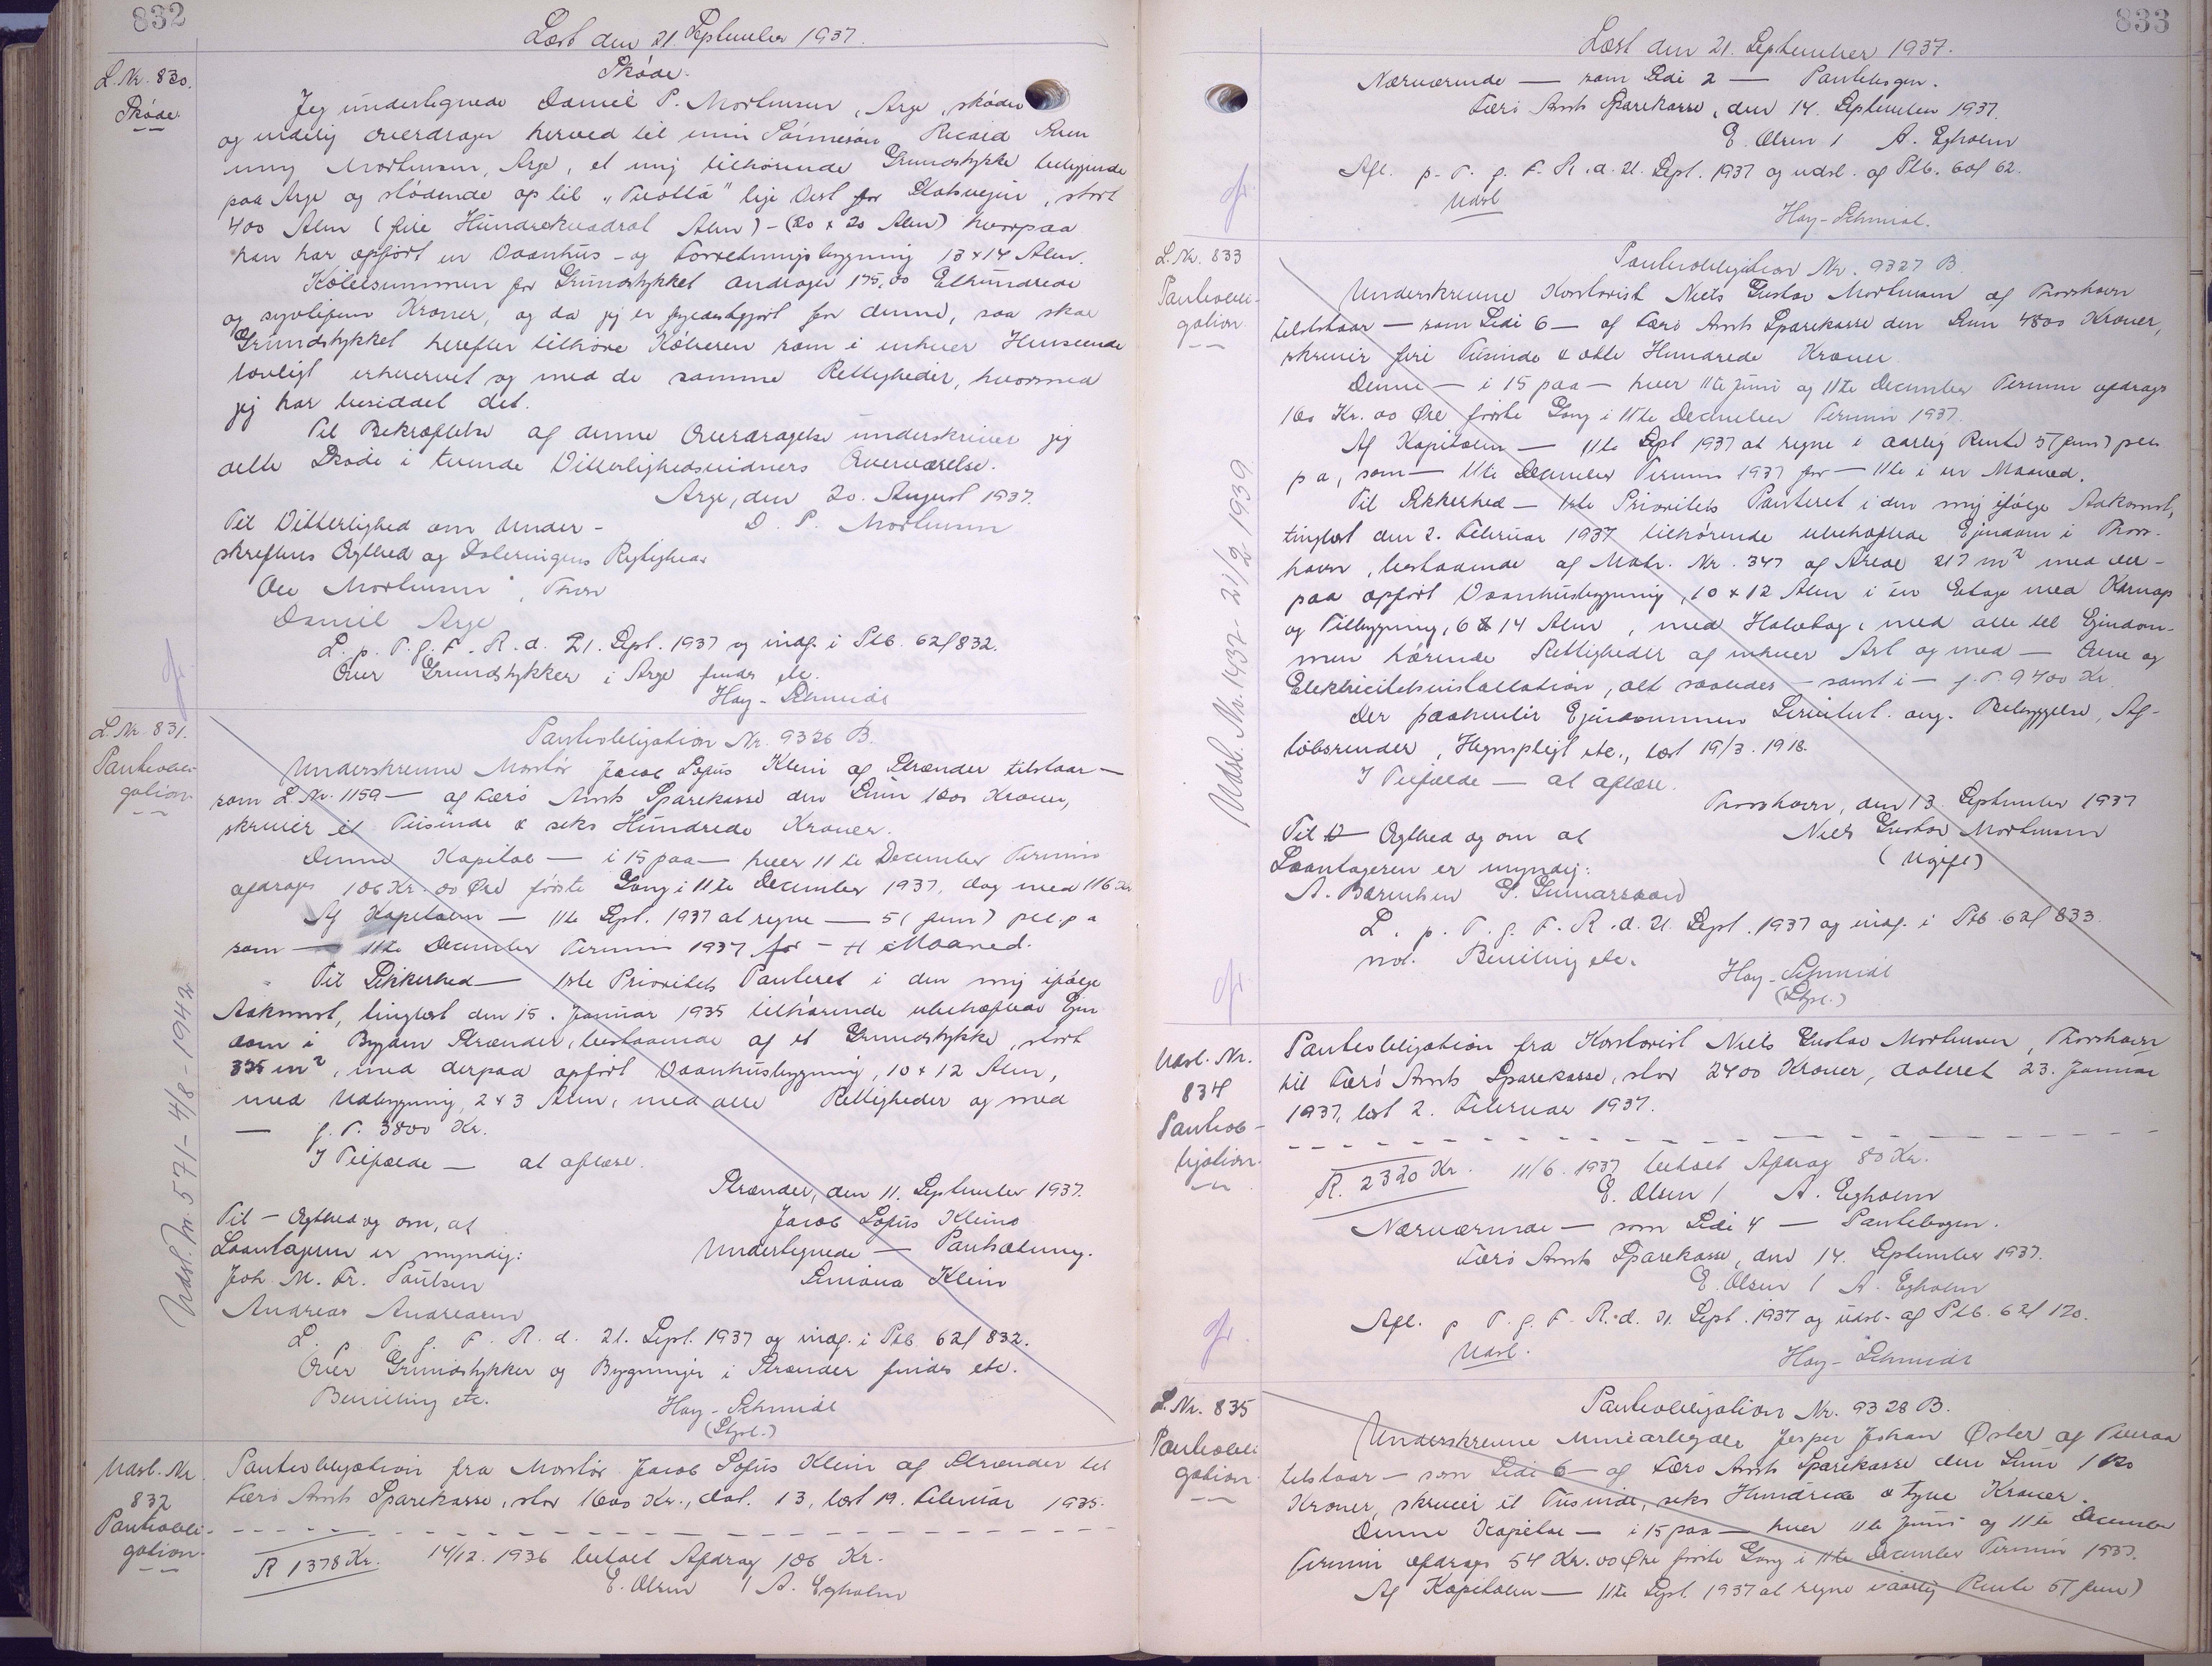 832
Læst den 21. September 1937.
L. Nr. 830.
Skøde.
Skøde.
Jeg undertegnede Daniel P. Mortensen, Arge, skøder
og endelig overdrager herved til min Sønnesøn Ricard
Mortensen, Arge, et mig tilhørende Grundstykke beliggende
paa Arge og stødende op til lige Vest for Statsvejen, stort
400 Alen (fire Hundrekvadrat Alen) - (20 x 20 Alen) hvorpaa
han har opført en Vaanhus- og Forretningsbygning 13 x 14 Alen.
Købesummen for Grundstykket andrager 175,00 Ethundrede
og syvtifem Kroner, og da jeg er fyldestgjort for denne, saa skal
Grundstykket herefter tilhøre Køberen som i enhver Henseende
lovligt erhvervet og med de samme Rettigheder, hvormed
jeg har besiddet det.
Til Bekræftelse af denne Overdragelse underskriver jeg
dette Skøde i tvende Vitterlighedsvidners Overværelse.
Arge, den 20. August 1937.
Til Vitterlighed om Under-
D. P. Mortensen
skriftens Ægthed og Dateringens Rigtighed
Ole Mortensen
Daniel Arge
L. p. T. f. F. R. d. 21. Sept. 1937 og indf. i Ptb. 62f 832.
Over Grundstykker i Arge findes etc.
Hay-Schmidt
L. Nr. 831.
Pantobli-
gation.
Udsl. Nr. 571 - 4/8 - 1942
Pantobligation Nr. 9326 B.
Underskrevne Montør Jacob Sofus Klein af Strænder tilstaar —
som L. Nr. 1159 — af Færø Amts Sparekasse den Sum 1600 Kroner,
skriver et Tusinde & seks Hundrede Kroner.
Denne Kapital — i 15 paa — hver 11te December Termin
afdrages 106 Kr. 00 Øre første Gang i 11te December 1937, dog med 116 Kr
Af Kapitalen — 11te Sept. 1937 at regne — 5 (fem) pct. p a
som — 11te December Termin 1937 for — Maaned.
Til Sikkerhed — 1ste Prioritets Panteret i den mig ifølge
Adkomst, tinglæst den 15. Januar 1935 tilhørende ubehæftede Ejen
dom i Bygden Strænder, bestaaende af et Grundstykke, stort
335 m², med derpaa opført Vaanhusbygning, 10 x 12 Alen,
med Udbygning, 2 x 3 Alen, med alle Rettigheder og med
— f. T. 3800 Kr.
I Tilfælde — at aflæse.
Strænder, den 11. September 1937.
Til — Ægthed og om, at
Jacob Sofus Klein
Laantageren er myndig:
Undertegnede — Pantsætning.
Joh. M. Fr. Poulsen
Klein
Andreas Andreasen
L. p. T. f. F. R. d. 21. Sept. 1937 og indf. i Ptb. 62f 832.
Over Grundstykker og Bygninger i Strænder findes etc.
Bevilling etc.
Hay-Schmidt
(Styst.)
Udsl. Nr.
832
Pantobli-
gation.
Pantobligation fra Montør Jacob Sofus Klein af Strænder til
Færø Amts Sparekasse, stor 1600 Kr., dat. 13, læst 19. Februar 1935.
R 1378 Kr. 14/12. 1936 betalt Afdrag 106 Kr.
E. Olsen / A. Egholm
833
Læst den 21. September 1937.
Nærværende — som Side 2 — Pantebogen.
Færø Amts Sparekasse, den 14. September 1937.
E. Olsen / A. Egholm
Afl. p. T. f. F. R. d. 21. Sept. 1937 og udsl. af Ptb. 60f 62.
Udsl
Hay-Schmidt.
L. Nr. 833
Pantobli-
gation.
Udsl. Nr. 1432 - 21/9 1939
Pantobligation Nr. 9327 B.
Underskrevne Kontorist Niels Gustav Mortensen af Thorshavn
tilstaar — som Side 6 — af Færø Amts Sparekasse den Sum 4800 Kroner,
skriver fire Tusinde & otte Hundrede Kroner
Denne — i 15 paa — hver 11te Juni og 11te December Termin afdrages
160 Kr. 00 Øre første Gang i 11te December Termin 1937.
Af Kapitalen — 11te Sept 1937 at regne i aarlig Rente 5 (fem) pct.
p a, som — 11te December Termin 1937 for — 11te i en Maaned.
Til Sikkerhed — 1ste Prioritets Panteret i den mig ifølge Adkomst,
tinglæst den 2. Februar 1937 tilhørende ubehæftede Ejendom i Thors-
havn, bestaaende af Matr. Nr. 347 af Areal 217 m² med der-
paa opført Vaanhusbygning, 10 x 12 Alen i en Etage med Karnap
og Tilbygning, 6 x 14 Alen, med Halvtag, med alle til Ejendom-
men hørende Rettigheder af enhver Art og med — Ovne og
Elektricitetsinstallation, alt saaledes — samt i — f. T. 9400 Kr.
Der paahviler Ejendommen Servitut ang. Bebyggelse, Af-
løbsrender, Hegnspligt etc., læst 19/3. 1918.
I Tilfælde — at aflæse.
Thorshavn, den 13. September 1937
Til — Ægthed og om at
Niels Gustav Mortensen
Laantageren er myndig:
(Ugift)
A. Berntsen
L. p. T. f. F. R. d. 21. Sept. 1937 og indf. i Ptb. 62f 833.
Bevilling etc.
Hay-Schmidt
(Styst.)
Udsl. Nr.
834
Pantob-
ligation.
Pantobligation fra Kontorist Niels Gustav Mortensen, Thorshavn
til Færø Amts Sparekasse, stor 2400 Kroner, dateret 23. Januar
1937, læst 2. Februar 1937.
R. 2320 Kr. 11/6. 1937 betalt Afdrag 80 Kr.
E. Olsen / A. Egholm
Nærværende — som Side 4 — Pantebogen.
Færø Amts Sparekasse, den 14. September 1937.
E. Olsen / A. Egholm
Afl. p T. f. F. R. d. 21. Sept. 1937 og udsl. af Ptb. 62f 120.
Udsl.
Hay-Schmidt
L. Nr. 835
Pantobli
gation.
Pantobligation Nr. 9328 B.
Underskrevne Minearbejder Jesper Johan Øster af
tilstaar — som Side 6 — af Færø Amts Sparekasse den Sum 1620
Kroner, skriver et Tusinde, seks Hundrede & tyve Kroner.
Denne Kapital — i 15 paa — hver 11te Juni og 11te December
Termin afdrages 54 Kr. 00 Øre første Gang i 11te December Termin 1937.
Af Kapitalen — 11te Sept. 1937 at regne i aarlig Rente 5 (fem)